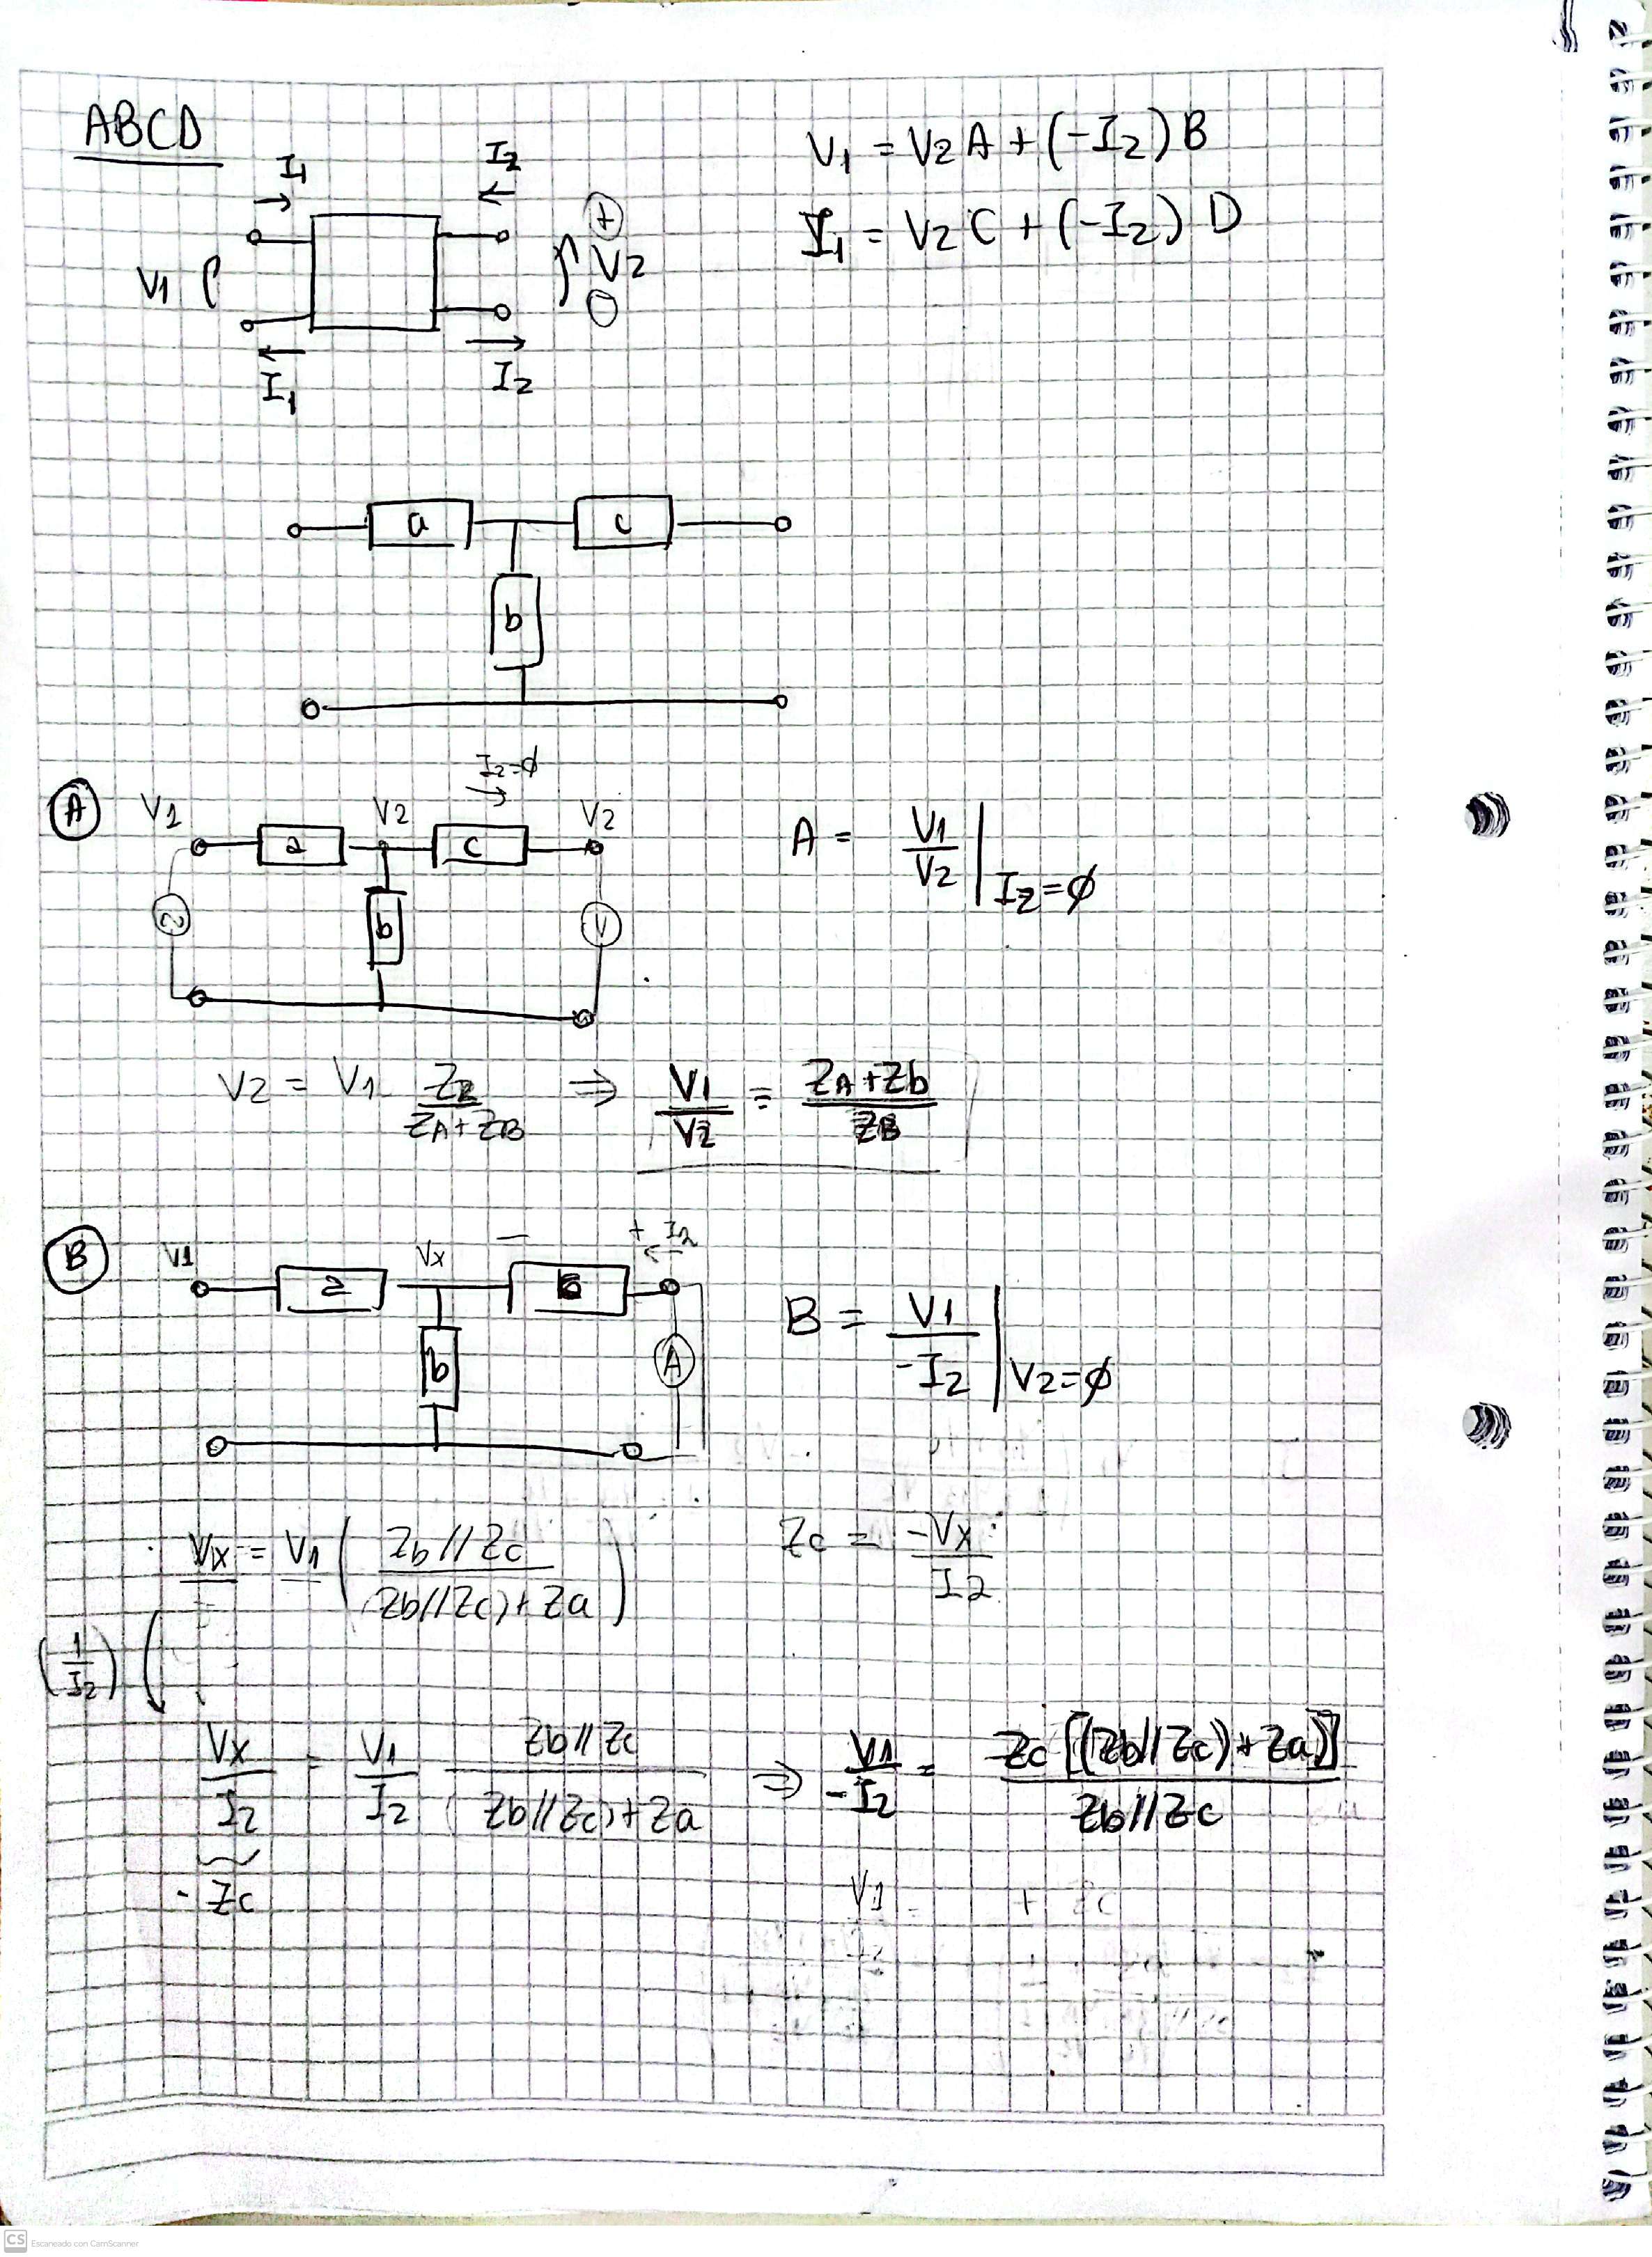 ABCD
I1 I2
V1 = V2 A + (-I2) B
I1 = V2 C + (-I2) D
+
V1 V2
-
I1 I2
a c
b
I2=∅
A V1 V2 V2
a c
b V
A = V1/V2 | I2=∅
V2 = V1 ZB/(ZA+ZB) ⇒ V1/V2 = (ZA+Zb)/ZB
B V1 Vx − + I2
a
b A
B = V1/-I2 | V2=∅
Vx = V1 ( Zb//Zc / (Zb//Zc)+Za )
Zc = -Vx/I2
(1/I2)
Vx/I2 = V1/I2 Zb//Zc / (Zb//Zc)+Za ⇒ V1/-I2 = Zc [(Zb//Zc)+Za)] / Zb//Zc
- Zc
V1 = + Zc
CS Escaneado con CamScanner